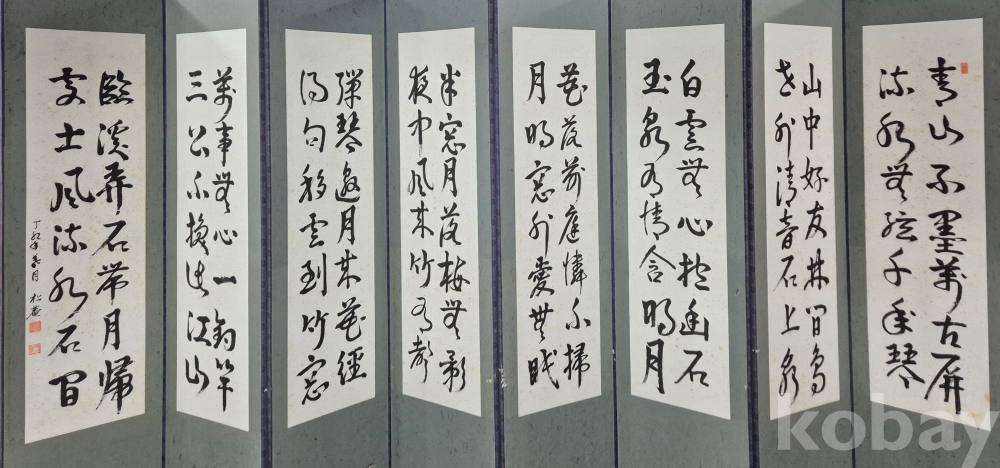 青山不墨萬古屏
流水無絃千年琴
山中好友林間鳥
世外清音石上泉
白雲無心抱幽石
玉泉有情含明月
花落前庭憐不掃
月明窓外愛無眠
半窓月落梅無影
夜中風來竹有聲
彈琴邀月來花經
得句移雲到竹窓
萬事無心一釣竿
三公不換此江山
臨溪弄石帶月歸
處士風流水石間
丁卯年 月 松菴
kobay